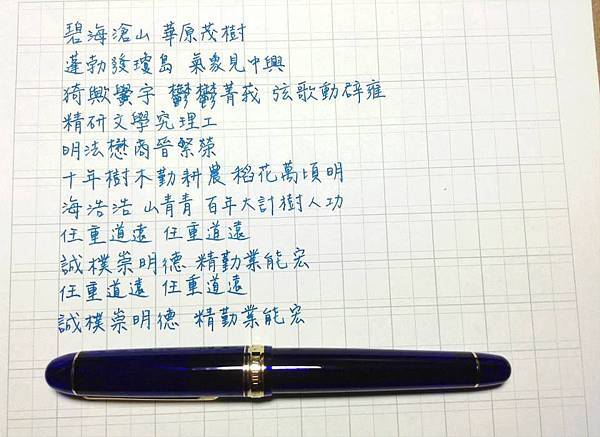 碧海滄山 華原茂樹
蓬勃發瓊島 氣象見中興
猗歟黌宇 鬱鬱菁莪 弦歌動辟雍
精研文學究理工
明法懋商晉繁榮
十年樹木勤耕農 稻花萬頃明
海浩浩 山青青 百年大計樹人功
任重道遠 任重道遠
誠樸崇明德 精勤業能宏
任重道遠 任重道遠
誠樸崇明德 精勤業能宏